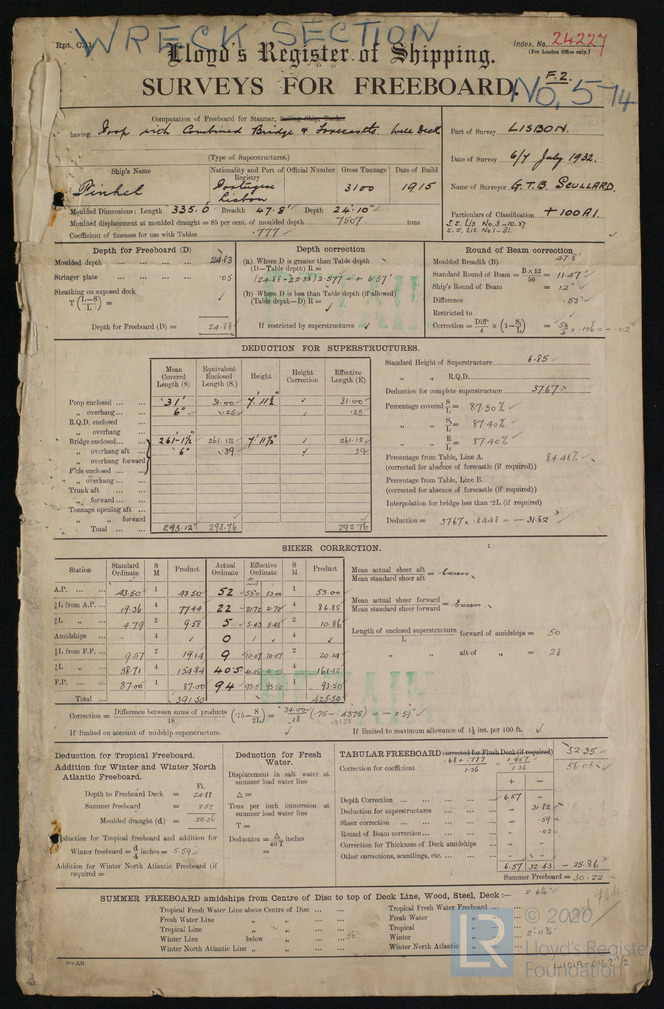 WRECK SECTION
Rpt. C.11.
Lloyd's Register of Shipping.
Index. No. 24227
(For London Office only.)
SURVEYS FOR FREEBOARD.
F.2.
No. 574
Computation of Freeboard for Steamer, Sailing Ship, Tanker
having Poop with Combined Bridge & Forecastle Well Deck
(Type of Superstructures.)
Port of Survey LISBON.
Date of Survey 6/7 July 1932.
Name of Surveyor G.T.B. SCULLARD.
Particulars of Classification + 100 A1.
S.S. Lis. No. 3 - 10.27
S.S. Lis. No 1 - 31.
Ship's Name
Nationality and Port of Registry
Official Number
Gross Tonnage
Date of Build
Pinhel
Portuguese
Lisbon
3100
1915
Moulded Dimensions: Length 335.0 Breadth 47.8' Depth 24'-10"
Moulded displacement at moulded draught = 85 per cent. of moulded depth 7507 tons
Coefficient of fineness for use with Tables .777
Depth for Freeboard (D)
Moulded depth 24.83
Stringer plate .05
Sheathing on exposed deck
T (L-S/L) =
Depth for Freeboard (D) = 24.88
Depth correction
(a) Where D is greater than Table depth
(D—Table depth) R =
(24.88-22.33) 2.577 = + 6.57
(b) Where D is less than Table depth (if allowed)
(Table depth—D) R =
If restricted by superstructures
Round of Beam correction
Moulded Breadth (B) 47.8'
Standard Round of Beam = B × 12 / 50 = 11.47
Ship's Round of Beam = 12"
Difference .53
Restricted to
Correction = Diff'/4 × (1-S/L) = .53/4 × .126 = -.02
DEDUCTION FOR SUPERSTRUCTURES.
Mean Covered Length (S)
Equivalent Enclosed Length (S₁)
Height
Height Correction
Effective Length (E)
Poop enclosed 31' 31.00 7'. 11½" 31.00
„ overhang 6" .25 .25
R.Q.D. enclosed
„ overhang
Bridge enclosed 261-1½" 261.12 7' 11½" 261.12
„ overhang aft 6" .39 .39
„ overhang forward
F'cle enclosed
„ overhang
Trunk aft
„ forward
Tonnage opening aft
„ „ forward
Total 293.12" 292.76 292.76
Standard Height of Superstructure 6.85
„ „ R.Q.D.
Deduction for complete superstructure 37.67
Percentage covered S/L = 87.50%
„ „ S₁/L = 87.40%
„ „ E/L = 87.40%
Percentage from Table, Line A. 84.48%
(corrected for absence of forecastle (if required))
Percentage from Table, Line B.
(corrected for absence of forecastle (if required))
Interpolation for bridge less than ·2L (if required)
Deduction = 37.67 × .8448 = - 31.82
SHEER CORRECTION.
Station
Standard Ordinate
S M
Product
Actual Ordinate
Effective Ordinate
S M
Product
A.P. 43.50 1 43.50 52 53.00 1 53.00
⅙L from A.P. 19.36 4 77.44 22 21.72 21.72 4 86.88
⅓L „ 4.79 2 9.58 5 5.43 5.43 2 10.86
Amidships 4 0 4
⅓L from F.P. 9.57 2 19.14 9 10.07 10.07 2 20.14
⅙L „ 38.71 4 154.84 40.5 4 161.12
F.P. 87.00 1 87.00 94 93.50 1 93.50
Total 391.50 425.50
Mean actual sheer aft / Mean standard sheer aft = Excess
Mean actual sheer forward / Mean standard sheer forward = Excess
Length of enclosed superstructure / L forward of amidships = 50
„ aft of „ = 28
Correction = Difference between sums of products / 18 (·75-S/2L) = 34.00/18 (.75-.4375) = - 0.59"
If limited on account of midship superstructure.
If limited to maximum allowance of 1½ ins. per 100 ft.
Deduction for Tropical Freeboard.
Addition for Winter and Winter North Atlantic Freeboard.
Ft.
Depth to Freeboard Deck = 24.88
Summer freeboard = 2.52
Moulded draught (d) = 22.36
Deduction for Tropical freeboard and addition for
Winter freeboard = d/4 inches = 5.59
Addition for Winter North Atlantic Freeboard (if required =
Deduction for Fresh Water.
Displacement in salt water at summer load water line
Δ =
Tons per inch immersion at summer load water line
T =
Deduction = Δ/40 T inches
=
TABULAR FREEBOARD corrected for Flush Deck (if required) 52.35
Correction for coefficient .68 + .777 / 1.36 = 1.457 / 1.36 56.08
+ -
Depth Correction 6.57
Deduction for superstructures 31.82
Sheer correction .59
Round of Beam correction .02
Correction for Thickness of Deck amidships
Other corrections, scantlings, etc.
6.57 32.43 - 25.86
Summer Freeboard = 30.22
SUMMER FREEBOARD amidships from Centre of Disc to top of Deck Line, Wood, Steel, Deck:— 2'6¼"
Tropical Fresh Water Line above Centre of Disc
Fresh Water Line „ „
Tropical Line „ „
Winter Line below „ „
Winter North Atlantic Line „ „
Tropical Fresh Water Freeboard
Fresh Water „
Tropical „
Winter „ 2'-11¾"
Winter North Atlantic „
© 2020
Lloyd's Register
Foundation